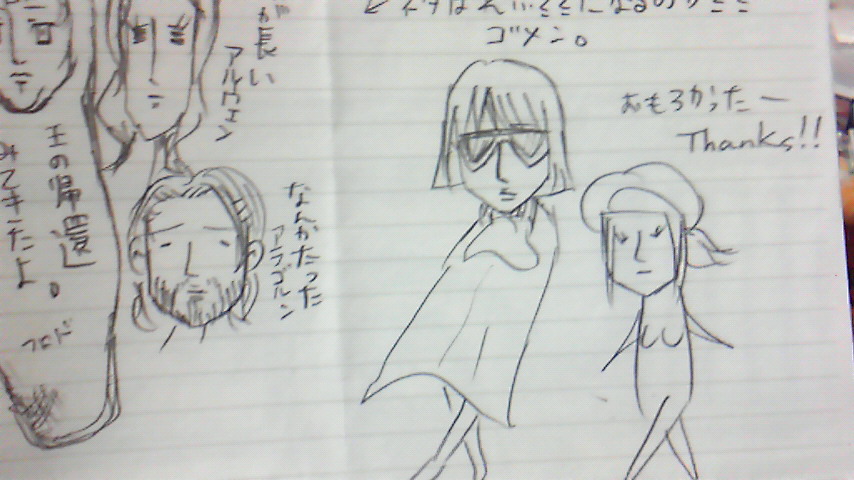 ゴメン。
おもろかったー
Thanks!!
が長い
アルウェン
なんかだった
アラゴルン
王の帰還。
みてきたよ
フロド